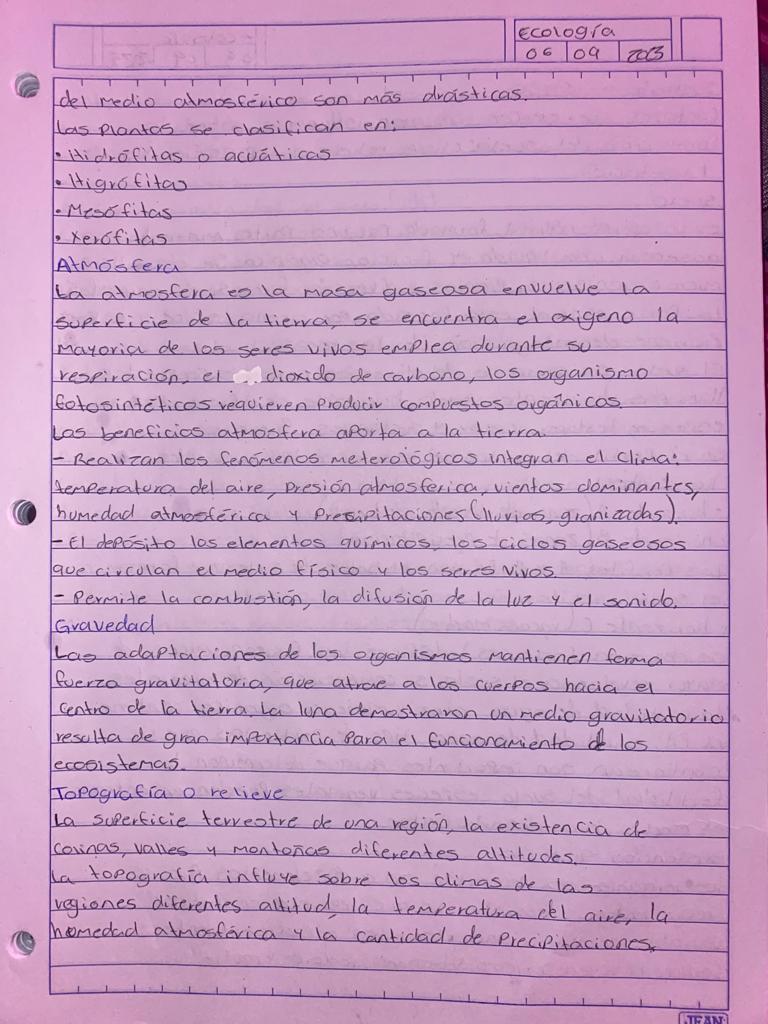 Ecología
06 09 2023
del medio atmosférico son más drásticas.
Las plantas se clasifican en:
• Hidrófitas o acuáticas
• Higrófitas
• Mesófitas
• Xerófitas
Atmósfera
La atmosfera es la masa gaseosa envuelve la
superficie de la tierra, se encuentra el oxigeno la
mayoria de los seres vivos emplea durante su
respiración, el dioxido de carbono, los organismo
fotosintéticos requieren producir compuestos orgánicos.
Los beneficios atmosfera aporta a la tierra.
- Realizan los fenómenos meterológicos integran el clima:
temperatura del aire, presión atmosferica, vientos dominantes,
humedad atmosférica y Presipitaciones (lluvias, granizadas).
- El depósito los elementos químicos, los ciclos gaseosos
que circulan el medio físico y los seres vivos.
- Permite la combustión, la difusión de la luz y el sonido.
Gravedad
Las adaptaciones de los organismos mantienen forma
fuerza gravitatoria, que atrae a los cuerpos hacia el
centro de la tierra. La luna demostraron un medio gravitatorio
resulta de gran importancia para el funcionamiento de los
ecosistemas.
Topografía o relieve
La superficie terrestre de una región, la existencia de
colinas, valles y montañas diferentes altitudes.
La topografía influye sobre los climas de las
regiones diferentes altitud, la temperatura del aire, la
humedad atmosférica y la cantidad de precipitaciones.
JEAN